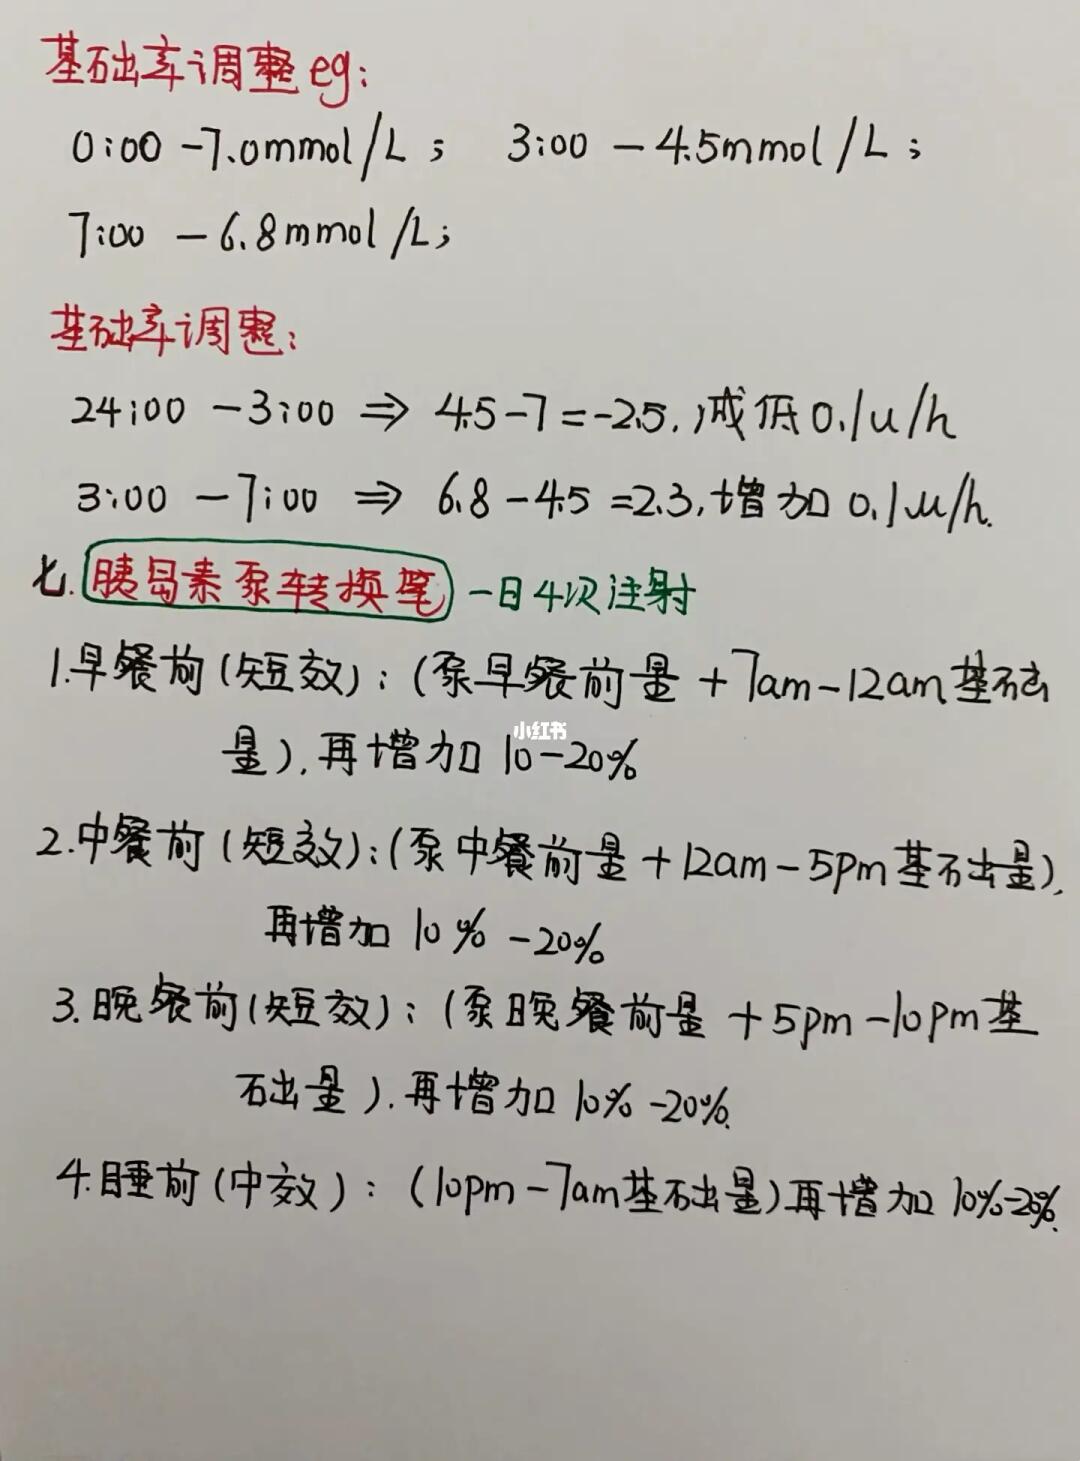 基础率调整eg:
0:00 -7.0mmol/L; 3:00 -4.5mmol/L;
7:00 -6.8mmol/L;
基础率调整:
24:00 -3:00 ⇒ 4.5-7=-2.5,减低0.1u/h
3:00 -7:00 ⇒ 6.8-4.5=2.3,增加0.1u/h.
七.胰岛素泵转换笔 一日4次注射
1.早餐前(短效):(泵早餐前量+7am-12am基础
量),再增加10-20%
小红书
2.中餐前(短效):(泵中餐前量+12am-5pm基础量),
再增加10%-20%
3.晚餐前(短效):(泵晚餐前量+5pm-10pm基
础量).再增加10%-20%.
4.睡前(中效):(10pm-7am基础量)再增加10%-20%.